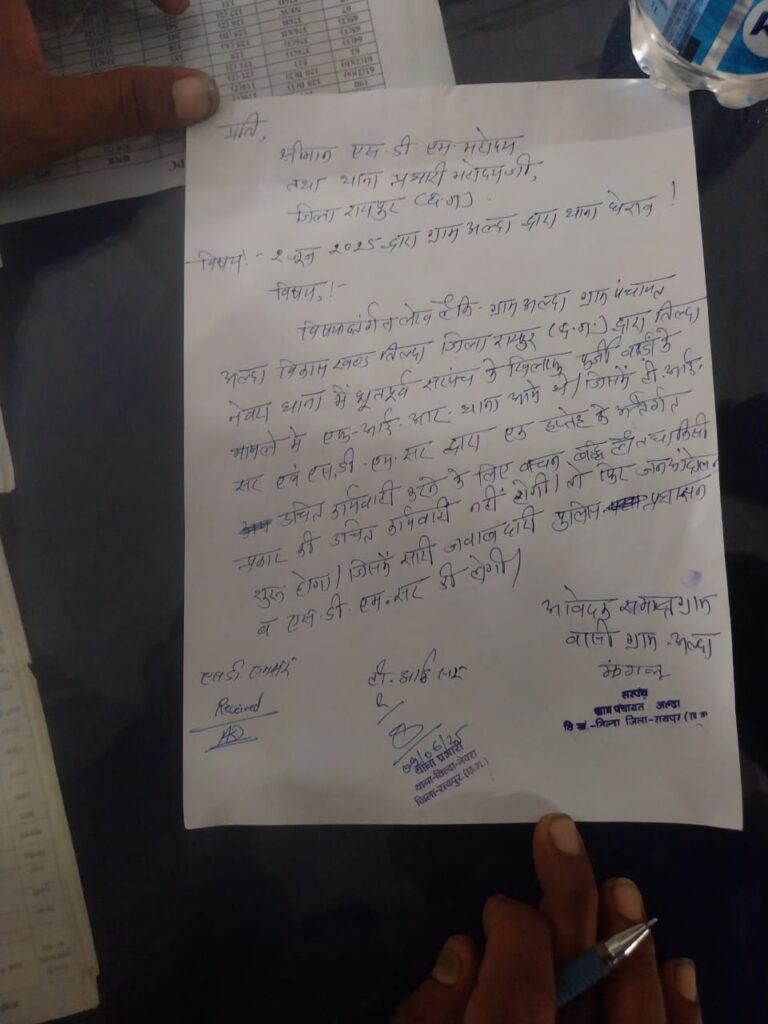 प्रति,
श्रीमान एस.डी.एम. महोदय
तथा थाना प्रभारी महोदय जी,
जिला रायपुर (छ.ग.)
विषय:- 2 जून 2025 द्वारा ग्राम अल्दा द्वारा थाना घेराव!
विषय,!-
विषयांर्गत लेख है कि- ग्राम अल्दा ग्राम पंचायत
अल्दा विकास खण्ड तिल्दा जिला रायपुर (छ.ग.) द्वारा तिल्दा
नेवरा थाना में भूतपूर्व सरपंच के खिलाफ फर्जी के
मामले में एफ-आई-आर- थाना आये थे/ जिसमें टी.आई.
सर एवं एस.डी.एम. सर द्वारा एक हप्तेह के अंतर्गत
उचित कार्यवाही करने के लिए वचन है तथा किसी
प्रकार की उचित कार्यवाही नहीं होगी/ तो फिर जन आंदोलन
शुरू होगा/ जिसमें सारी जवाबदारी पुलिस प्रशासन
व एस.डी.एम. सर ही होगी/
आवेदक समस्त ग्राम
वासी ग्राम- अल्दा
टी. आई सर
Received
09/06/25
थाना प्रभारी
थाना-तिल्दा-नेवरा
जिला-रायपुर (छ.ग.)
सरपंच
ग्राम पंचायत अल्दा
वि.खं.-तिल्दा जिला-रायपुर